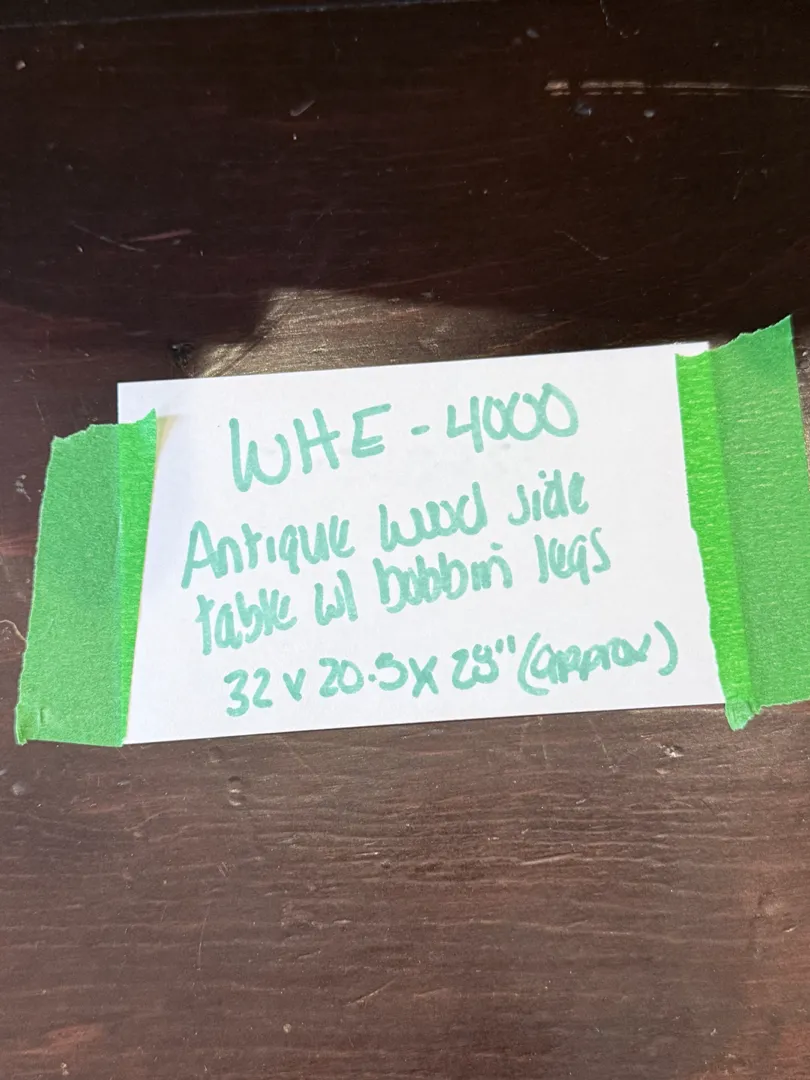 WHE - 4000
Antique wood side
table w/ bobbin legs
32 x 20.5 x 28" (approx)